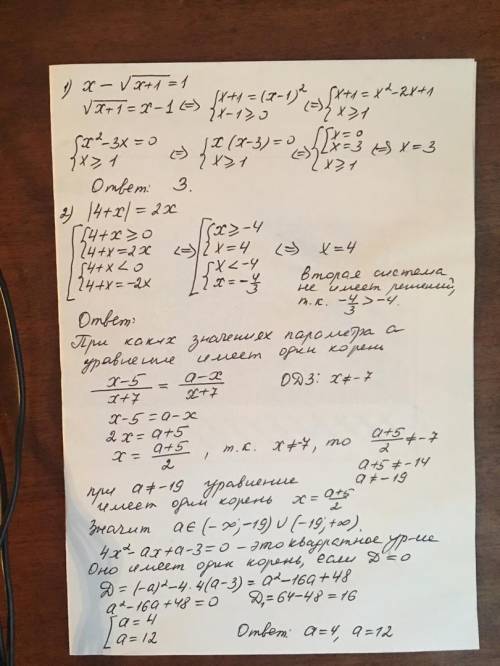 1) x − √(x+1) = 1
√(x+1) = x−1 ⇔ {x+1 = (x−1)² {x−1 ≥ 0 ⇔ {x+1 = x²−2x+1 {x ≥ 1
{x²−3x = 0 {x ≥ 1 ⇔ {x(x−3) = 0 {x ≥ 1 ⇔ {[x = 0 [x = 3 {x ≥ 1 ⇔ x = 3
Ответ: 3.
2) |4+x| = 2x
[{4+x ≥ 0 {4+x = 2x ⇔ [{x ≥ −4 {x = 4 ⇔ x = 4
[{4+x < 0 {4+x = −2x [{x < −4 {x = −4/3
Вторая система
не имеет решений,
т.к. −4/3 > −4.
Ответ:
При каких значениях параметра а
уравнение имеет один корень
(x−5)/(x+7) = (a−x)/(x+7) ОДЗ: x ≠ −7
x−5 = a−x
2x = a+5
x = (a+5)/2, т.к. x ≠ −7, то (a+5)/2 ≠ −7
a+5 ≠ −14
a ≠ −19
при a ≠ −19 уравнение
имеет один корень x = (a+5)/2
Значит a ∈ (−∞; −19) ∪ (−19; +∞).
4x² − ax + a − 3 = 0 – это квадратное ур-ие
Оно имеет один корень, если D = 0
D = (−a)² − 4·4(a−3) = a² − 16a + 48
a² − 16a + 48 = 0 D₁ = 64 − 48 = 16
[a = 4
[a = 12 Ответ: a = 4, a = 12